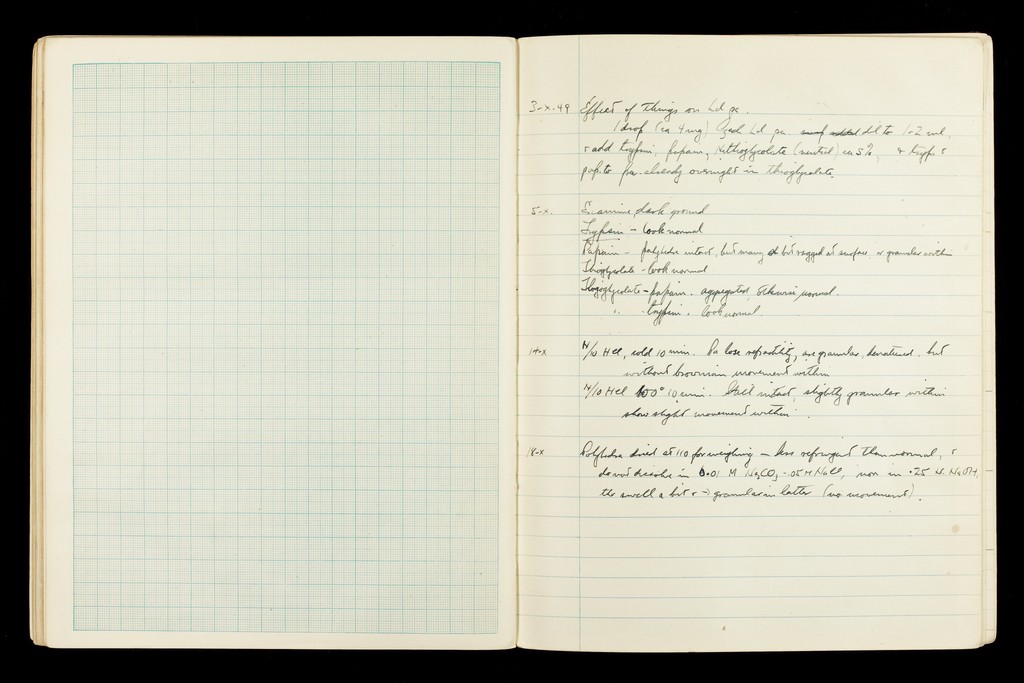 3-x-49 Effect of Things on Ld pa.
1 drop (ca 4 mg) Ld pa. dil to 1-2 ml,
& add trypsin, papain, thioglycolate (neutral) ca 5%, & tryp &
pap to already overnight in thioglycolate.
5-x. Examine, dark ground
Trypsin - look normal
Papain - polyhedra intact, but many bit ragged at surface, or granular within
Thioglycolate - look normal
Thogoglycolate - papain. aggregated, otherwise normal.
" - trypsin. look normal.
14-x N/10 HCl, cold 10 min. Pa lose refractility, are granular, denatured, but
without brownian movement within
N/10 HCl 100° 10 min. Still intact, slightly granular within
show slight movement within.
18-x Polyhedra dried at 110 for weighing - less refringent than normal, &
do not dissolve in 0.01 M Na2CO3 - .05 M NaCl, nor in .25 N. NaOH,
tho swell a bit & → granular in latter (no movement).